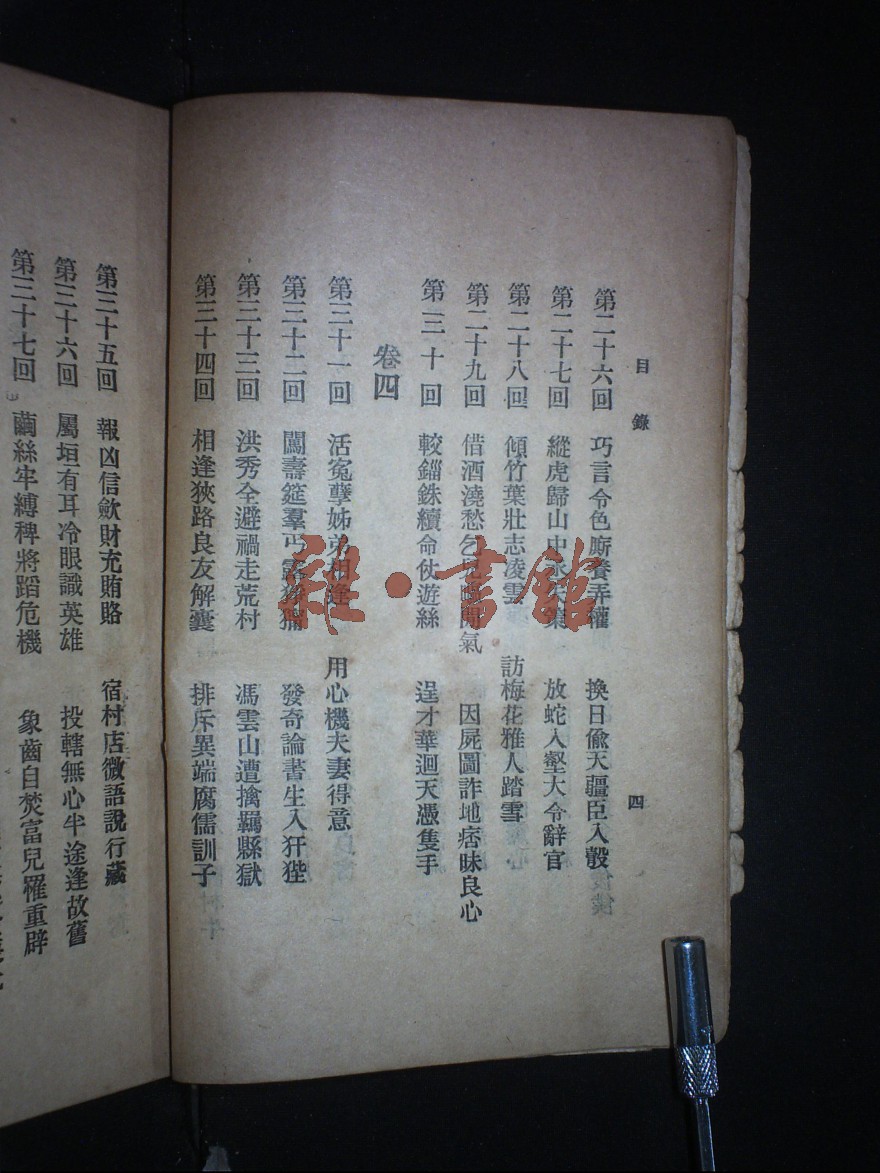 目錄
四
第二十六回 巧言令色廝養弄權 換日偸天疆臣入彀
第二十七回 縱虎歸山中丞失策 放蛇入壑大令辭官
第二十八回 傾竹葉壯志凌雲 訪梅花雅人踏雪
第二十九回 借酒澆愁乞兒 閒氣 因屍圖詐地痞昧良心
第三十回 較錙銖續命仗遊絲 逞才華迴天憑隻手
卷四
第三十一回 活冤孽姊弟相逢 用心機夫妻得意
第三十二回 鬧壽筵羣丐 發奇論書生入犴狴
第三十三回 洪秀全避禍走荒村 馮雲山遭擒羈縣獄
第三十四回 相逢狹路良友解囊 排斥異端腐儒訓子
第三十五回 報凶信歛財充賄賂 宿村店微語說行藏
第三十六回 屬垣有耳冷眼識英雄 投轄無心半途逢故舊
第三十七回 繭絲牢縛稗將蹈危機 象齒自焚富兒罹重辟
雜·書館